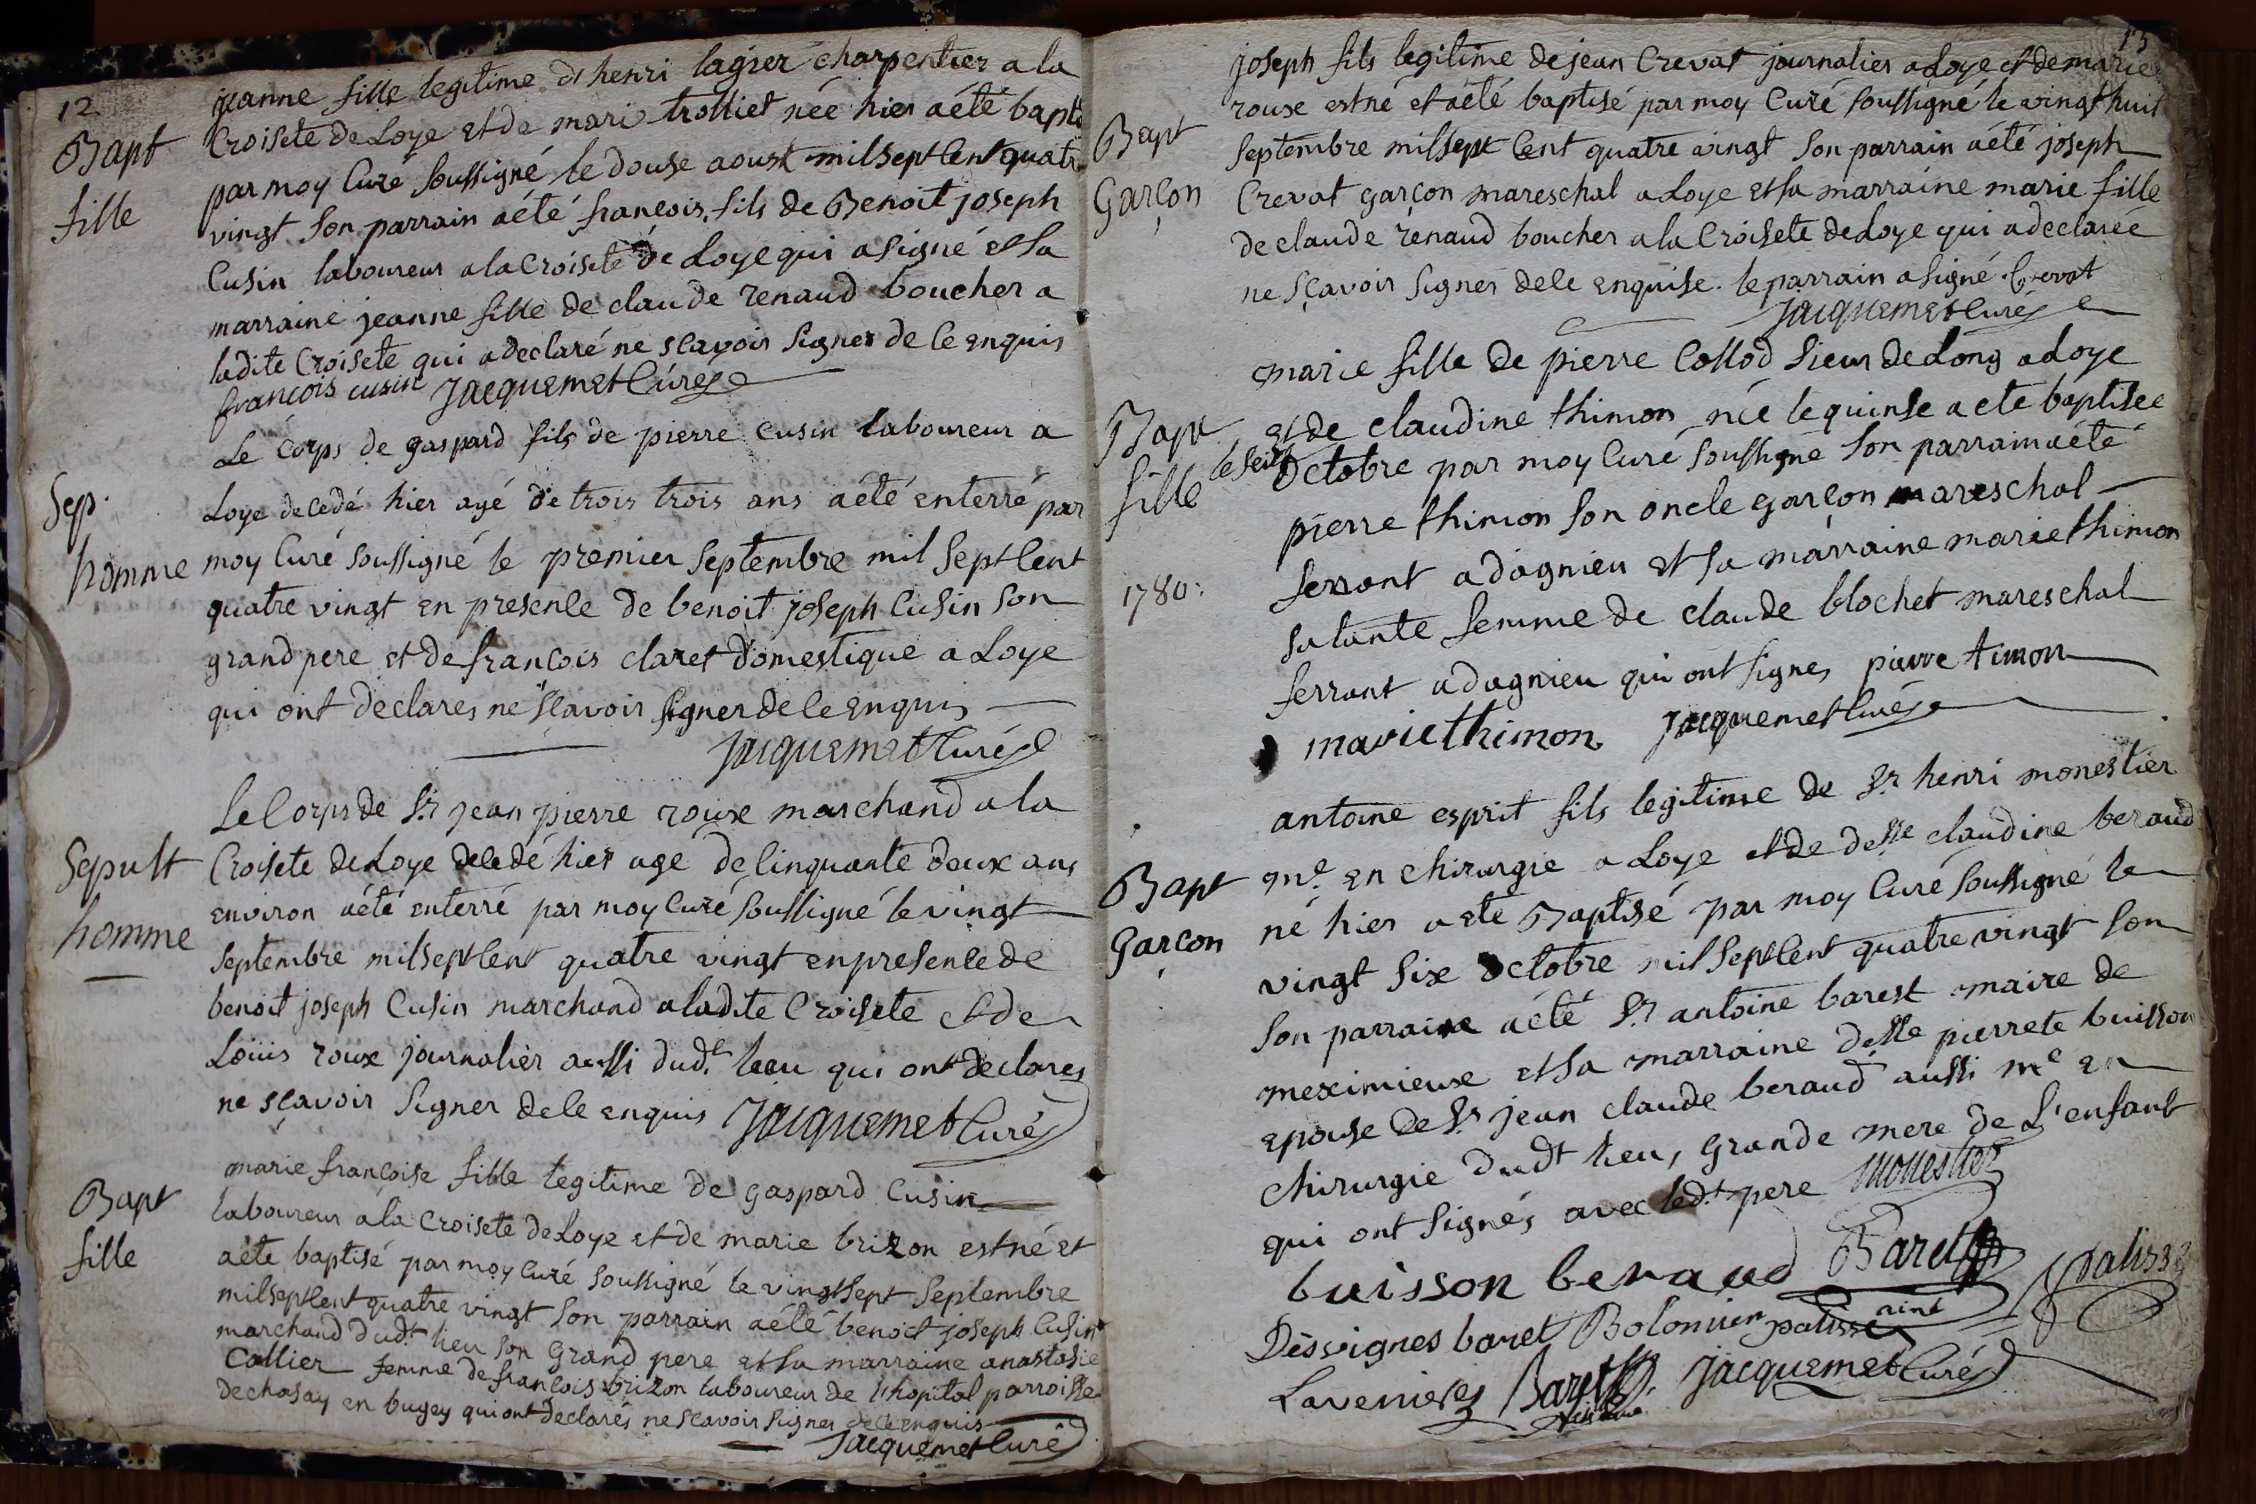 12
Bapt
fille
jeanne fille legitime de henri lagier charpentier a la
Croisete de Loye et de mari trolliet née hier a été bapt
par moy Curé soussigné le douse aoust mil sept Cent quatre
vingt son parrain a été françois fils de Benoit joseph
Cusin laboureur a la Croisete de Loye qui a signé et sa
marraine jeanne fille de claude renaud boucher a
ladite Croisete qui a declaré ne sçavoir signer de ce enquis
françois cusin Jacquemet Curé
Sep.
homme
Le Corps de gaspard fils de pierre Cusin laboureur a
Loye decedé hier agé de trois trois ans a été enterré par
moy Curé soussigné le premier septembre mil sept Cent
quatre vingt en presence de benoit joseph Cusin son
grand pere et de françois claret domestique a Loye
qui ont declarés ne sçavoir signer de ce enquis
Jacquemet Curé
Sepult
homme
Le Corps de Sr jean pierre roux marchand a la
Croisete de Loye decedé hier agé de Cinquante deux ans
environ a été enterré par moy Curé soussigné le vingt
septembre mil sept Cent quatre vingt en presence de
benoit joseph Cusin marchand a ladite Croisete et de
Loüis roux journalier aussi dudt lieu qui ont declarés
ne sçavoir signer de ce enquis Jacquemet Curé
Bapt
fille
marie françoise fille legitime de gaspard Cusin
laboureur a la Croisete de Loye et de marie brizon est né et
a été baptisé par moy Curé soussigné le vingt sept septembre
mil sept Cent quatre vingt son parrain a été benoit joseph Cusin
marchand dudt lieu son grand pere et sa marraine anastasie
Collier femme de françois brizon laboureur de l'hopital parroisse
de chasay en bugey qui ont declarés ne sçavoir signer de ce enquis
Jacquemet Curé
13
Bapt
Garçon
joseph fils legitime de jean Crevat journalier a Loye et de marie
roux est né et a été baptisé par moy Curé soussigné le vingt huit
septembre mil sept Cent quatre vingt son parrain a été joseph
Crevat garçon mareschal a Loye et sa marraine marie fille
de claude renaud boucher a la Croisete de Loye qui a declarée
ne sçavoir signer de ce enquise. le parrain a signé. Crevat
Jacquemet Curé
Bapt
fille
1780:
marie fille de pierre Collod sieur de Long a Loye
et de claudine thimon née le quinse a été baptisée
le seise octobre par moy Curé soussigné son parrain a été
pierre thimon son oncle garçon mareschal
ferrant a dagnieu et sa marraine marie thimon
sa tante femme de claude blochet mareschal
ferrant a dagnieu qui ont signés piarre timon
marie thimon Jacquemet Curé
Bapt
Garçon
antoine esprit fils legitime de Sr henri monestier
me en chirurgie a Loye et de delle claudine beraud
né hier a été Baptisé par moy Curé soussigné le
vingt six octobre mil sept Cent quatre vingt son
son parraine a été Sr antoine barest maire de
meximieux et sa marraine delle pierrete buisson
epouse de Sr jean claude beraud aussi me en
chirurgie dudt lieu, grande mere de L'enfant
qui ont signés avec ledt pere Monestier
buisson beraud Baret
palisse
Desvignes baret Bolomier palisse ainé
Lavernieres Baret Jacquemet Curé